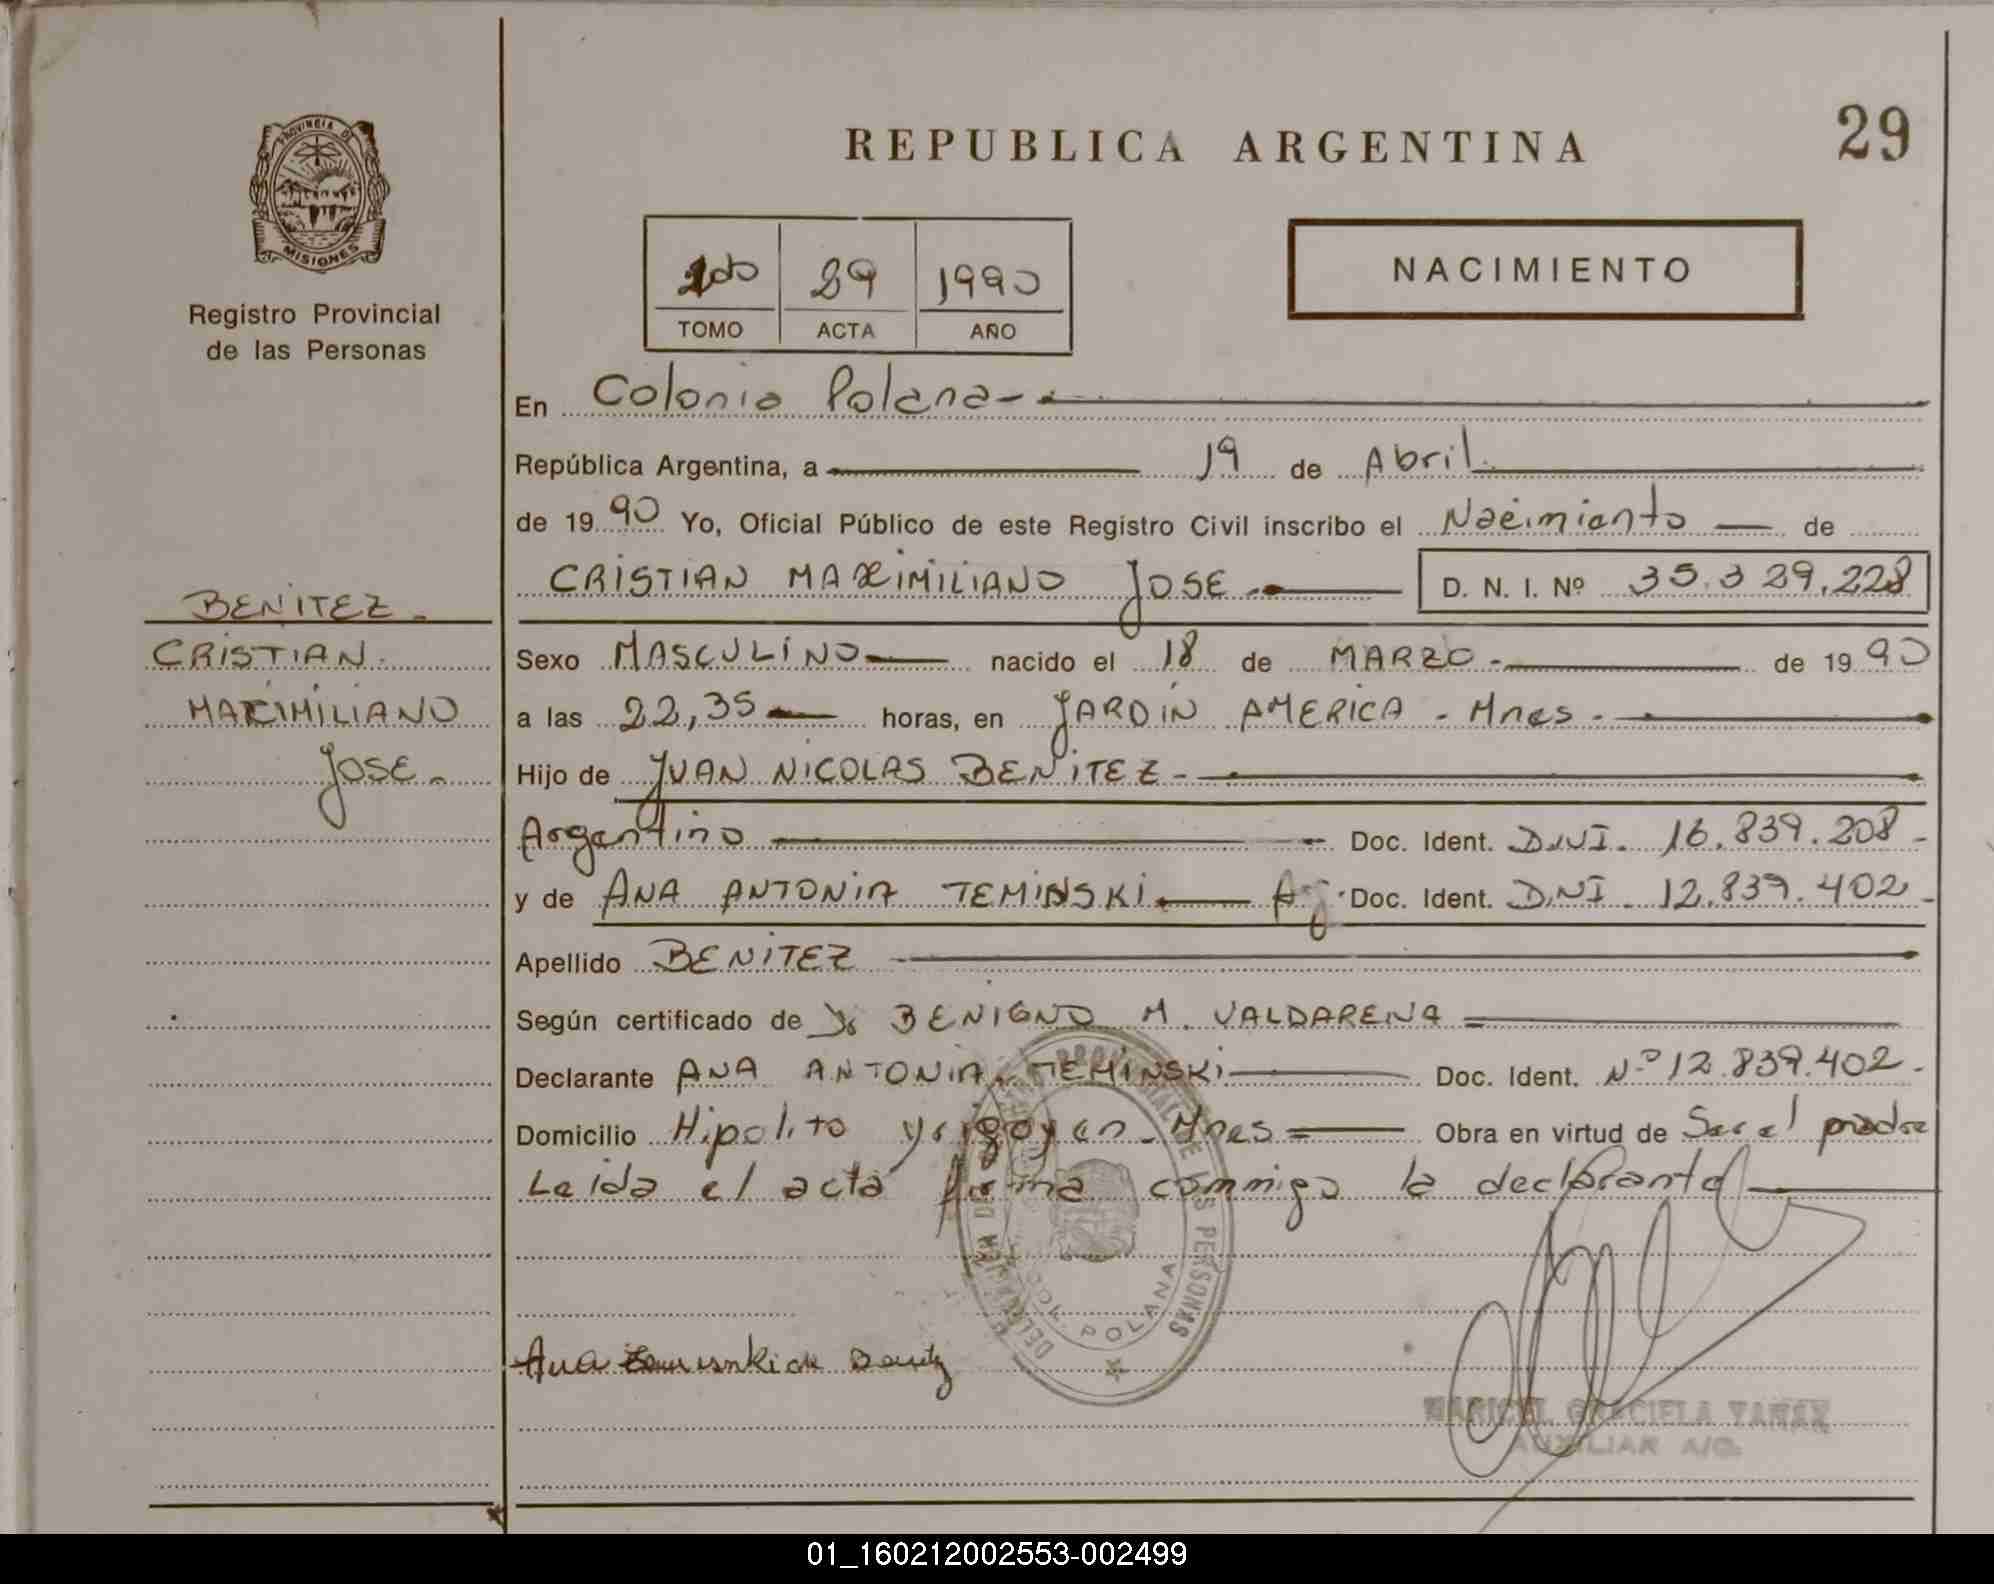 PROVINCIA DE
MISIONES
Registro Provincial
de las Personas
REPUBLICA ARGENTINA
29
2do 29 1990
TOMO ACTA AÑO
NACIMIENTO
En Colonia Polana
República Argentina, a 19 de Abril
de 1990 Yo, Oficial Público de este Registro Civil inscribo el Nacimiento de
CRISTIAN MAXIMILIANO JOSE D. N. I. Nº 35.329.228
BENITEZ
CRISTIAN
MAXIMILIANO
JOSE
Sexo MASCULINO nacido el 18 de MARZO de 1990
a las 22,35 horas, en JARDIN AMERICA - Mnes -
Hijo de JUAN NICOLAS BENITEZ -
Argentino Doc. Ident. D.N.I. 16.839.208 -
y de ANA ANTONIA TEMINSKI Arg. Doc. Ident. D.N.I. 12.839.402 -
Apellido BENITEZ
Según certificado de Dr BENIGNO M. VALDARENA
Declarante ANA ANTONIA TEMINSKI Doc. Ident. Nº 12.839.402 -
Domicilio Hipolito Yrigoyen - Mnes = Obra en virtud de Ser el padre
Leida el acta firma conmigo la declarante
POLANA
Ana
MARICEL GRACIELA
AUXILIAR A/C.
01_160212002553-002499